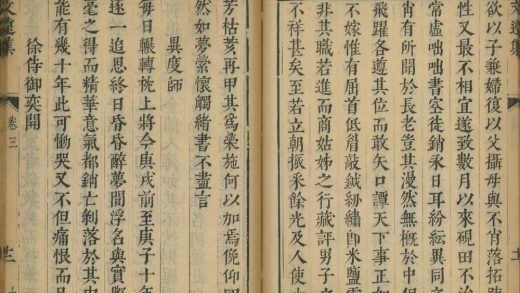 欲以子兼婦復以父攝母與不肖落拓
性又最不相宜遂致數月以來硯田不治
常虛咄咄書空徒銷永日耳紛紜異同
肖有所聞於長老豈其漫然無概於中但
飛躍各遵其位而敢矢口譚天下事正如
不嫁惟有屈首低眉敲鍼紉繡卽米鹽
非其職若進而商姑姊之行藏評男子
不祥甚矣至若立朝振采餘光及人使
芳枯荄再甲其爲榮施何以加焉俛仰
然如夢縈懷觸緒書不盡言
異度師
每日輾轉枕上將今庚戌前至庚子十年
逐一追思終日昏昏醉夢間浮名與實際
毫之得而精華意氣都銷亡剝落於其中
能有幾十年此可慟哭又不但痛恨而且
徐侍御奕開
文遠集
卷三